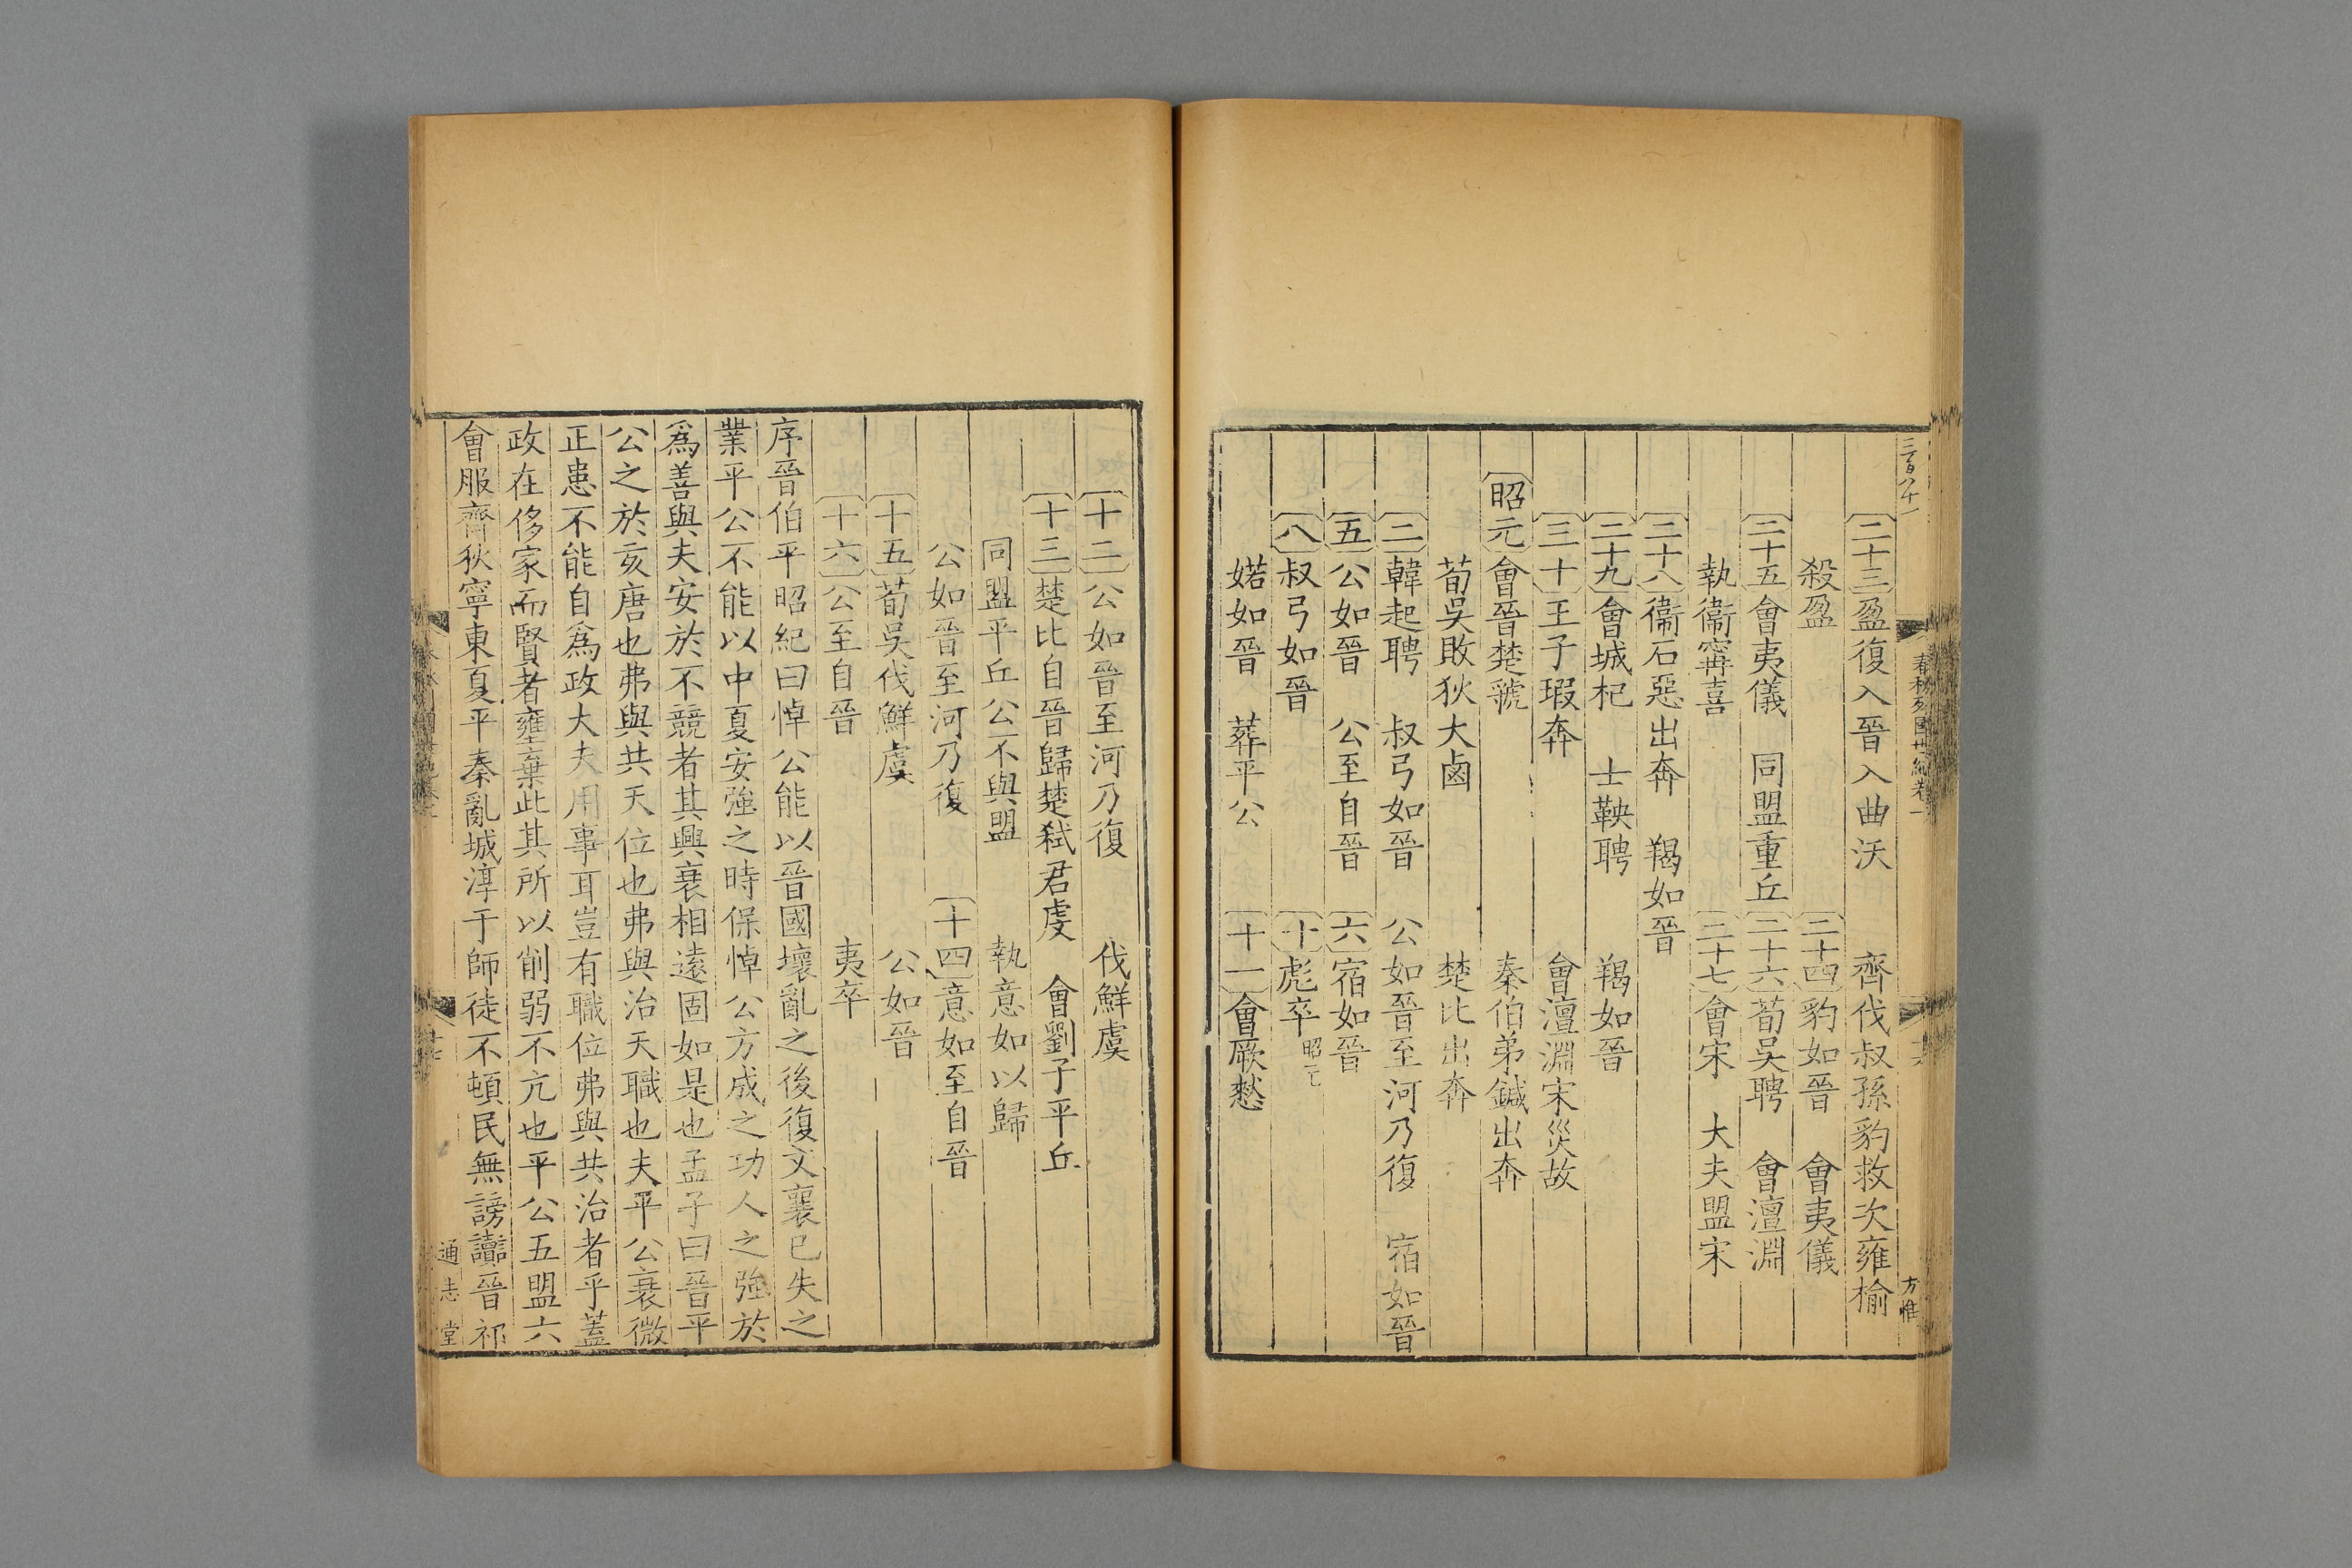 二十三盈復入晉入曲沃 齊伐叔孫豹救次雍榆
殺盈 二十四豹如晉 會夷儀
二十五會夷儀 同盟重丘 二十六荀吳聘 會澶淵
執衞甯喜 二十七會宋 大夫盟宋
二十八衞石惡出奔 羯如晉
二十九會城杞 士鞅聘 羯如晉
三十王子瑕奔 會澶淵宋災故
昭元會晉楚虢 秦伯弟鍼出奔
荀吳敗狄大鹵 楚比出奔
二韓起聘 叔弓如晉 公如晉至河乃復 宿如晉
五公如晉 公至自晉 六宿如晉
八叔弓如晉 十彪卒 昭元
婼如晉 葬平公 十一會厥憖
十二公如晉至河乃復 伐鮮虞
十三楚比自晉歸楚弒君虔 會劉子平丘
同盟平丘公不與盟 執意如以歸
公如晉至河乃復 十四意如至自晉
十五荀吳伐鮮虞 公如晉
十六公至自晉 夷卒
序晉伯平昭紀曰悼公能以晉國壞亂之後復文襄已失之
業平公不能以中夏安強之時保悼公方成之功人之強於
爲善與夫安於不競者其興衰相遠固如是也孟子曰晉平
公之於亥唐也弗與共天位也弗與治天職也夫平公衰微
正患不能自爲政大夫用事耳豈有職位弗與共治者乎蓋
政在侈家而賢者壅棄此其所以削弱不亢也平公五盟六
會服齊狄寧東夏平秦亂城淳于師徒不頓民無謗讟晉祁
通志堂